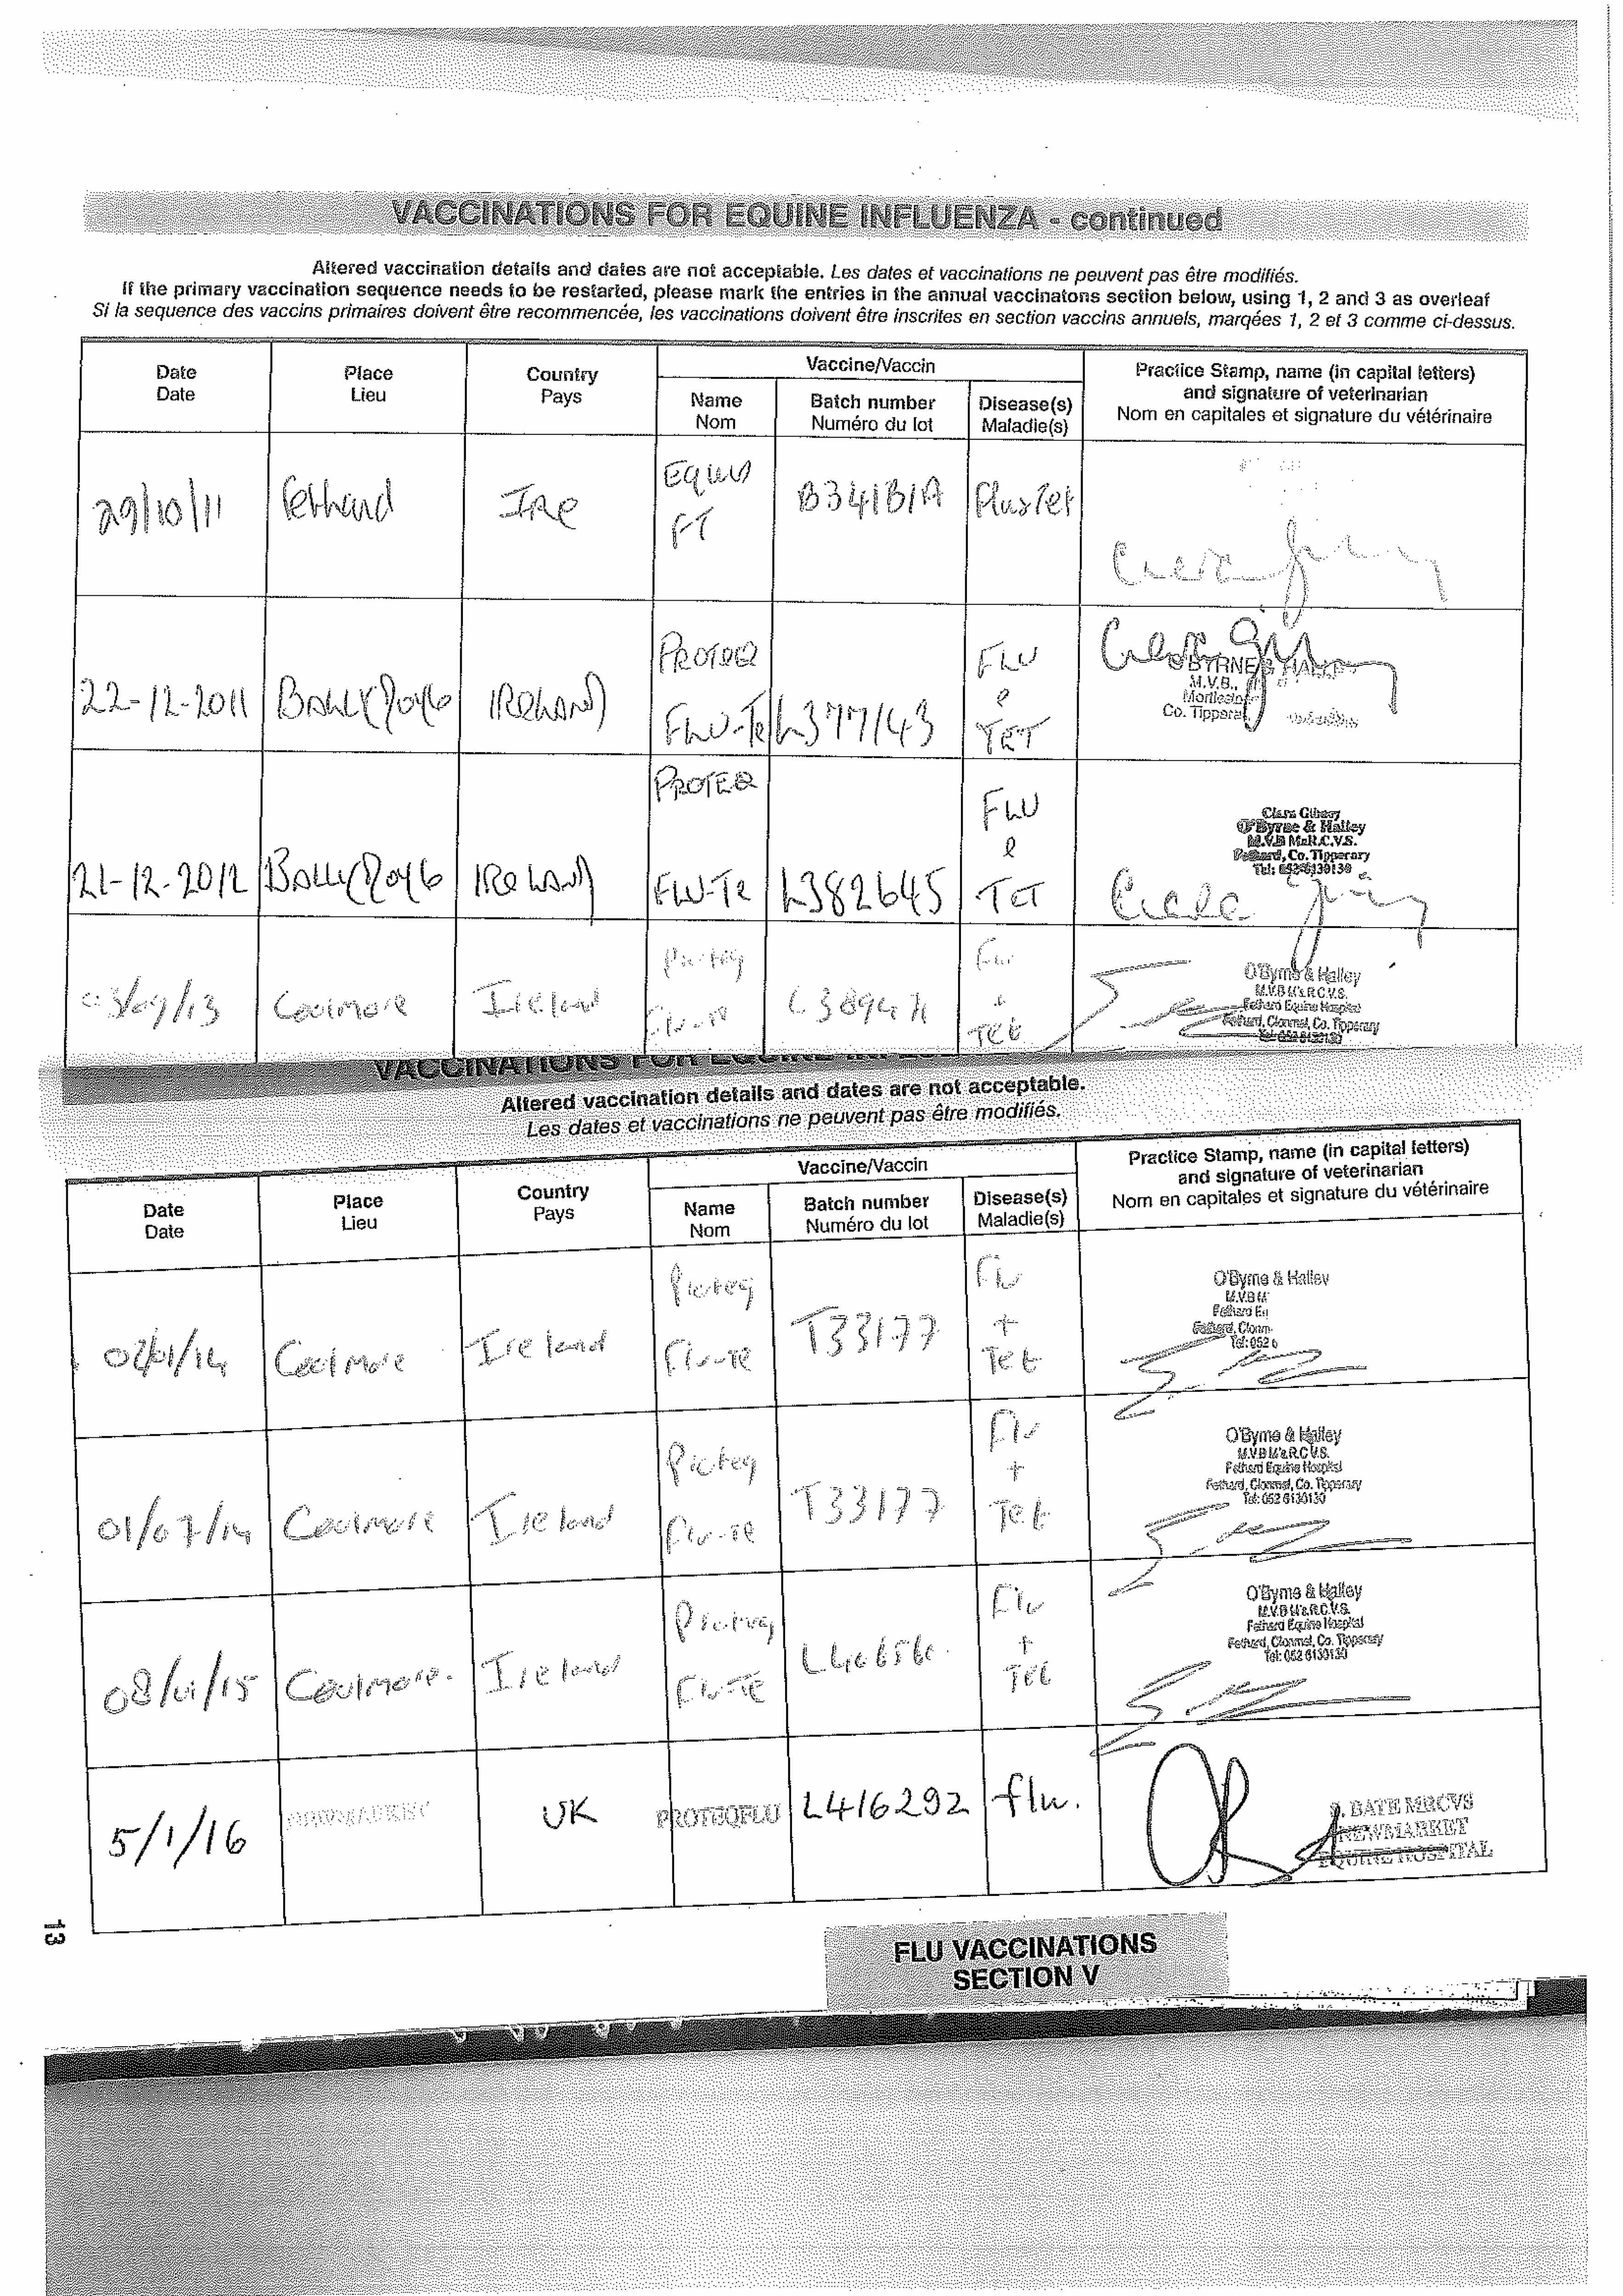 VACCINATIONS FOR EQUINE INFLUENZA - continued
Altered vaccination details and dates are not acceptable. Les dates et vaccinations ne peuvent pas être modifiés.
If the primary vaccination sequence needs to be restarted, please mark the entries in the annual vaccinatons section below, using 1, 2 and 3 as overleaf
Si la sequence des vaccins primaires doivent être recommencée, les vaccinations doivent être inscrites en section vaccins annuels, marqées 1, 2 et 3 comme ci-dessus.
Date Place Country Vaccine/Vaccin Practice Stamp, name (in capital letters)
Date Lieu Pays Name Batch number Disease(s) and signature of veterinarian
Nom Numéro du lot Maladie(s) Nom en capitales et signature du vétérinaire
29/10/11 Fethard IRe Equip B341B1A
FT
22-12-2011 BALLYDOYLE IRELAND PROTEQ FLU
FLU-Te L377143 e
TET
O'BYRNE & HALLEY
M.V.B.,
Co. Tipperary
21-12-2012 BALLYDOYLE IRELAND PROTEQ FLU
FLU-Te L382645 e
TET
Clara Gibney
O'Byrne & Halley
M.V.B M.R.C.V.S.
Fethard, Co. Tipperary
Tel: 052 6130130
Coolmore Ireland Proteq Flu
Flu-Te +
Tet
O'Byrne & Halley
M.V.B M.R.C.V.S.
Fethard Equine Hospital
Fethard, Clonmel, Co. Tipperary
Tel: 052 6130130
VACCINATIONS FOR EQUINE
Altered vaccination details and dates are not acceptable.
Les dates et vaccinations ne peuvent pas être modifiés.
Date Place Country Vaccine/Vaccin Practice Stamp, name (in capital letters)
Date Lieu Pays Name Batch number Disease(s) and signature of veterinarian
Nom Numéro du lot Maladie(s) Nom en capitales et signature du vétérinaire
Coolmore Ireland Proteq T33177 Flu
Flu-Te +
Tet
O'Byrne & Halley
01/07/14 Coolmore Ireland Proteq T33177 Flu
Flu-Te +
Tet
O'Byrne & Halley
M.V.B M.R.C.V.S.
Fethard Equine Hospital
Fethard, Clonmel, Co. Tipperary
Tel: 052 6130130
08/01/15 Coolmore. Ireland Proteq Flu
Flu-Te +
Tet
O'Byrne & Halley
M.V.B M.R.C.V.S.
Fethard Equine Hospital
Fethard, Clonmel, Co. Tipperary
Tel: 052 6130130
5/1/16 NEWMARKET UK PROTEQFLU L416292 flu.
BATE MRCVS
NEWMARKET
EQUINE HOSPITAL
13
FLU VACCINATIONS
SECTION V